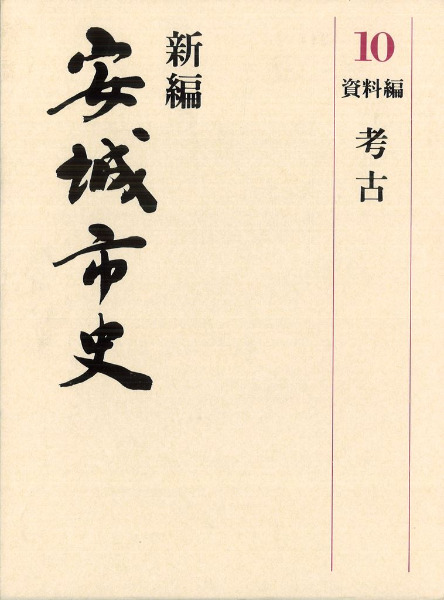 10
資料編
考古
新編
安城市史